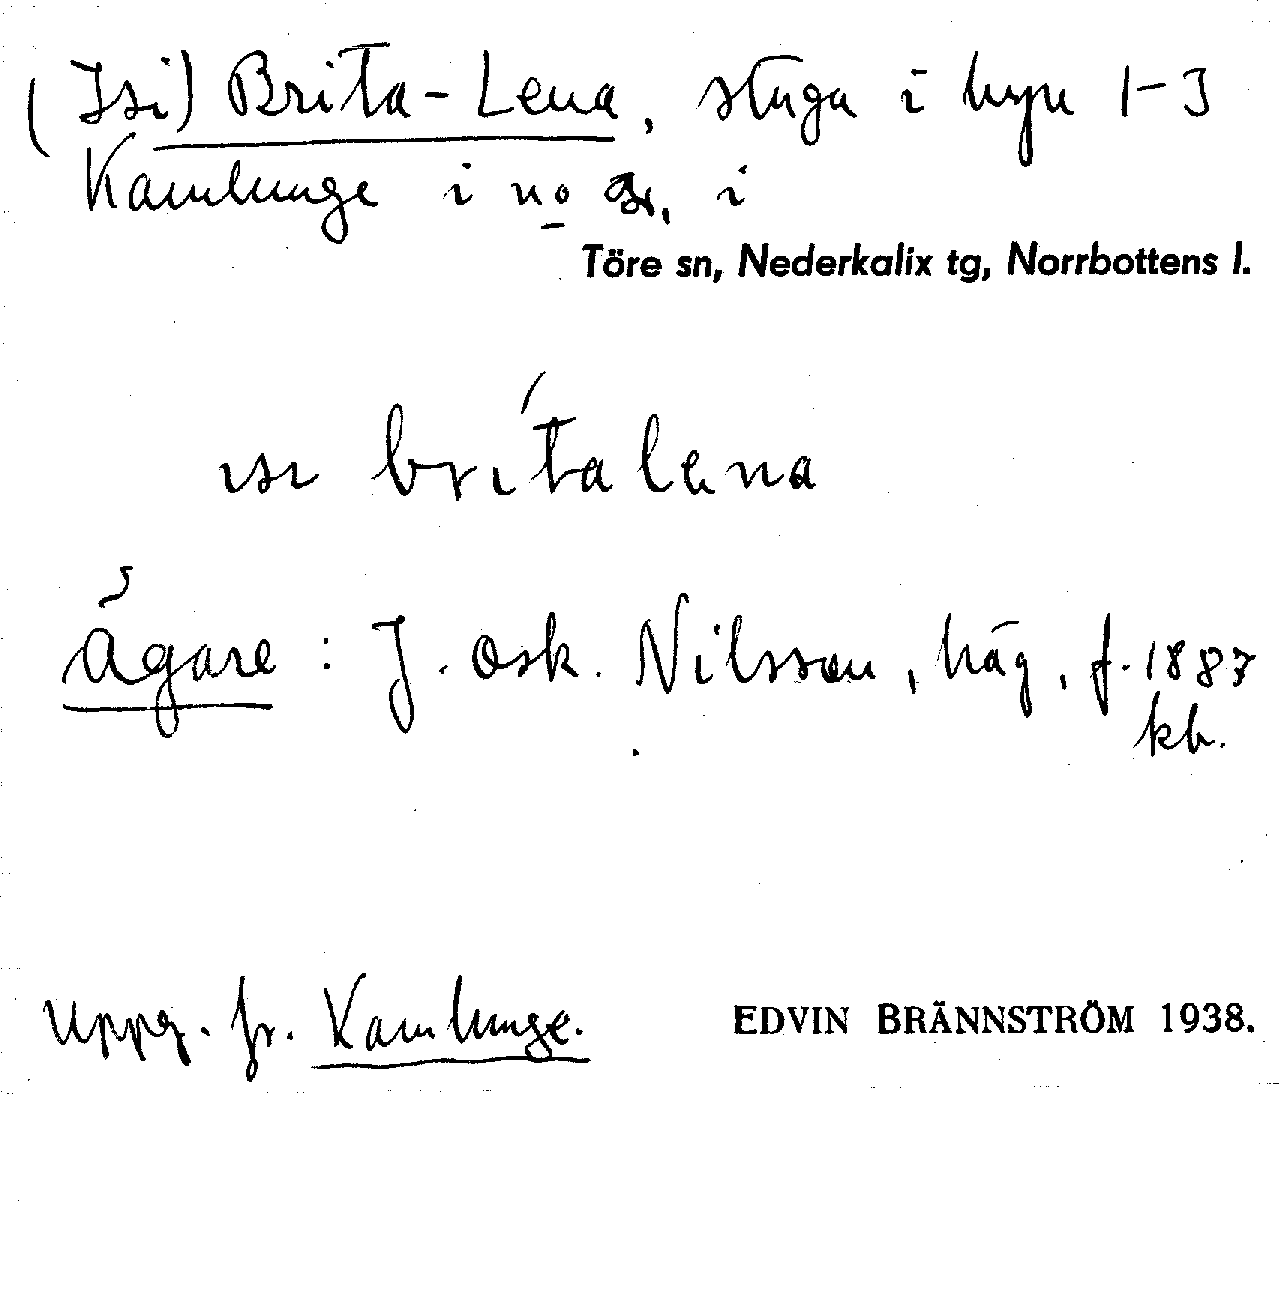 (Isi) Brita-Lena, stuga i byn 1-3
Kamlunge i no i
Töre sn, Nederkalix tg, Norrbottens l.
ısı brı́talena
Ägare: J. Osk. Nilsson, häg, f. 1887
kb.
Uppg. fr. Kamlunge.
EDVIN BRÄNNSTRÖM 1938.